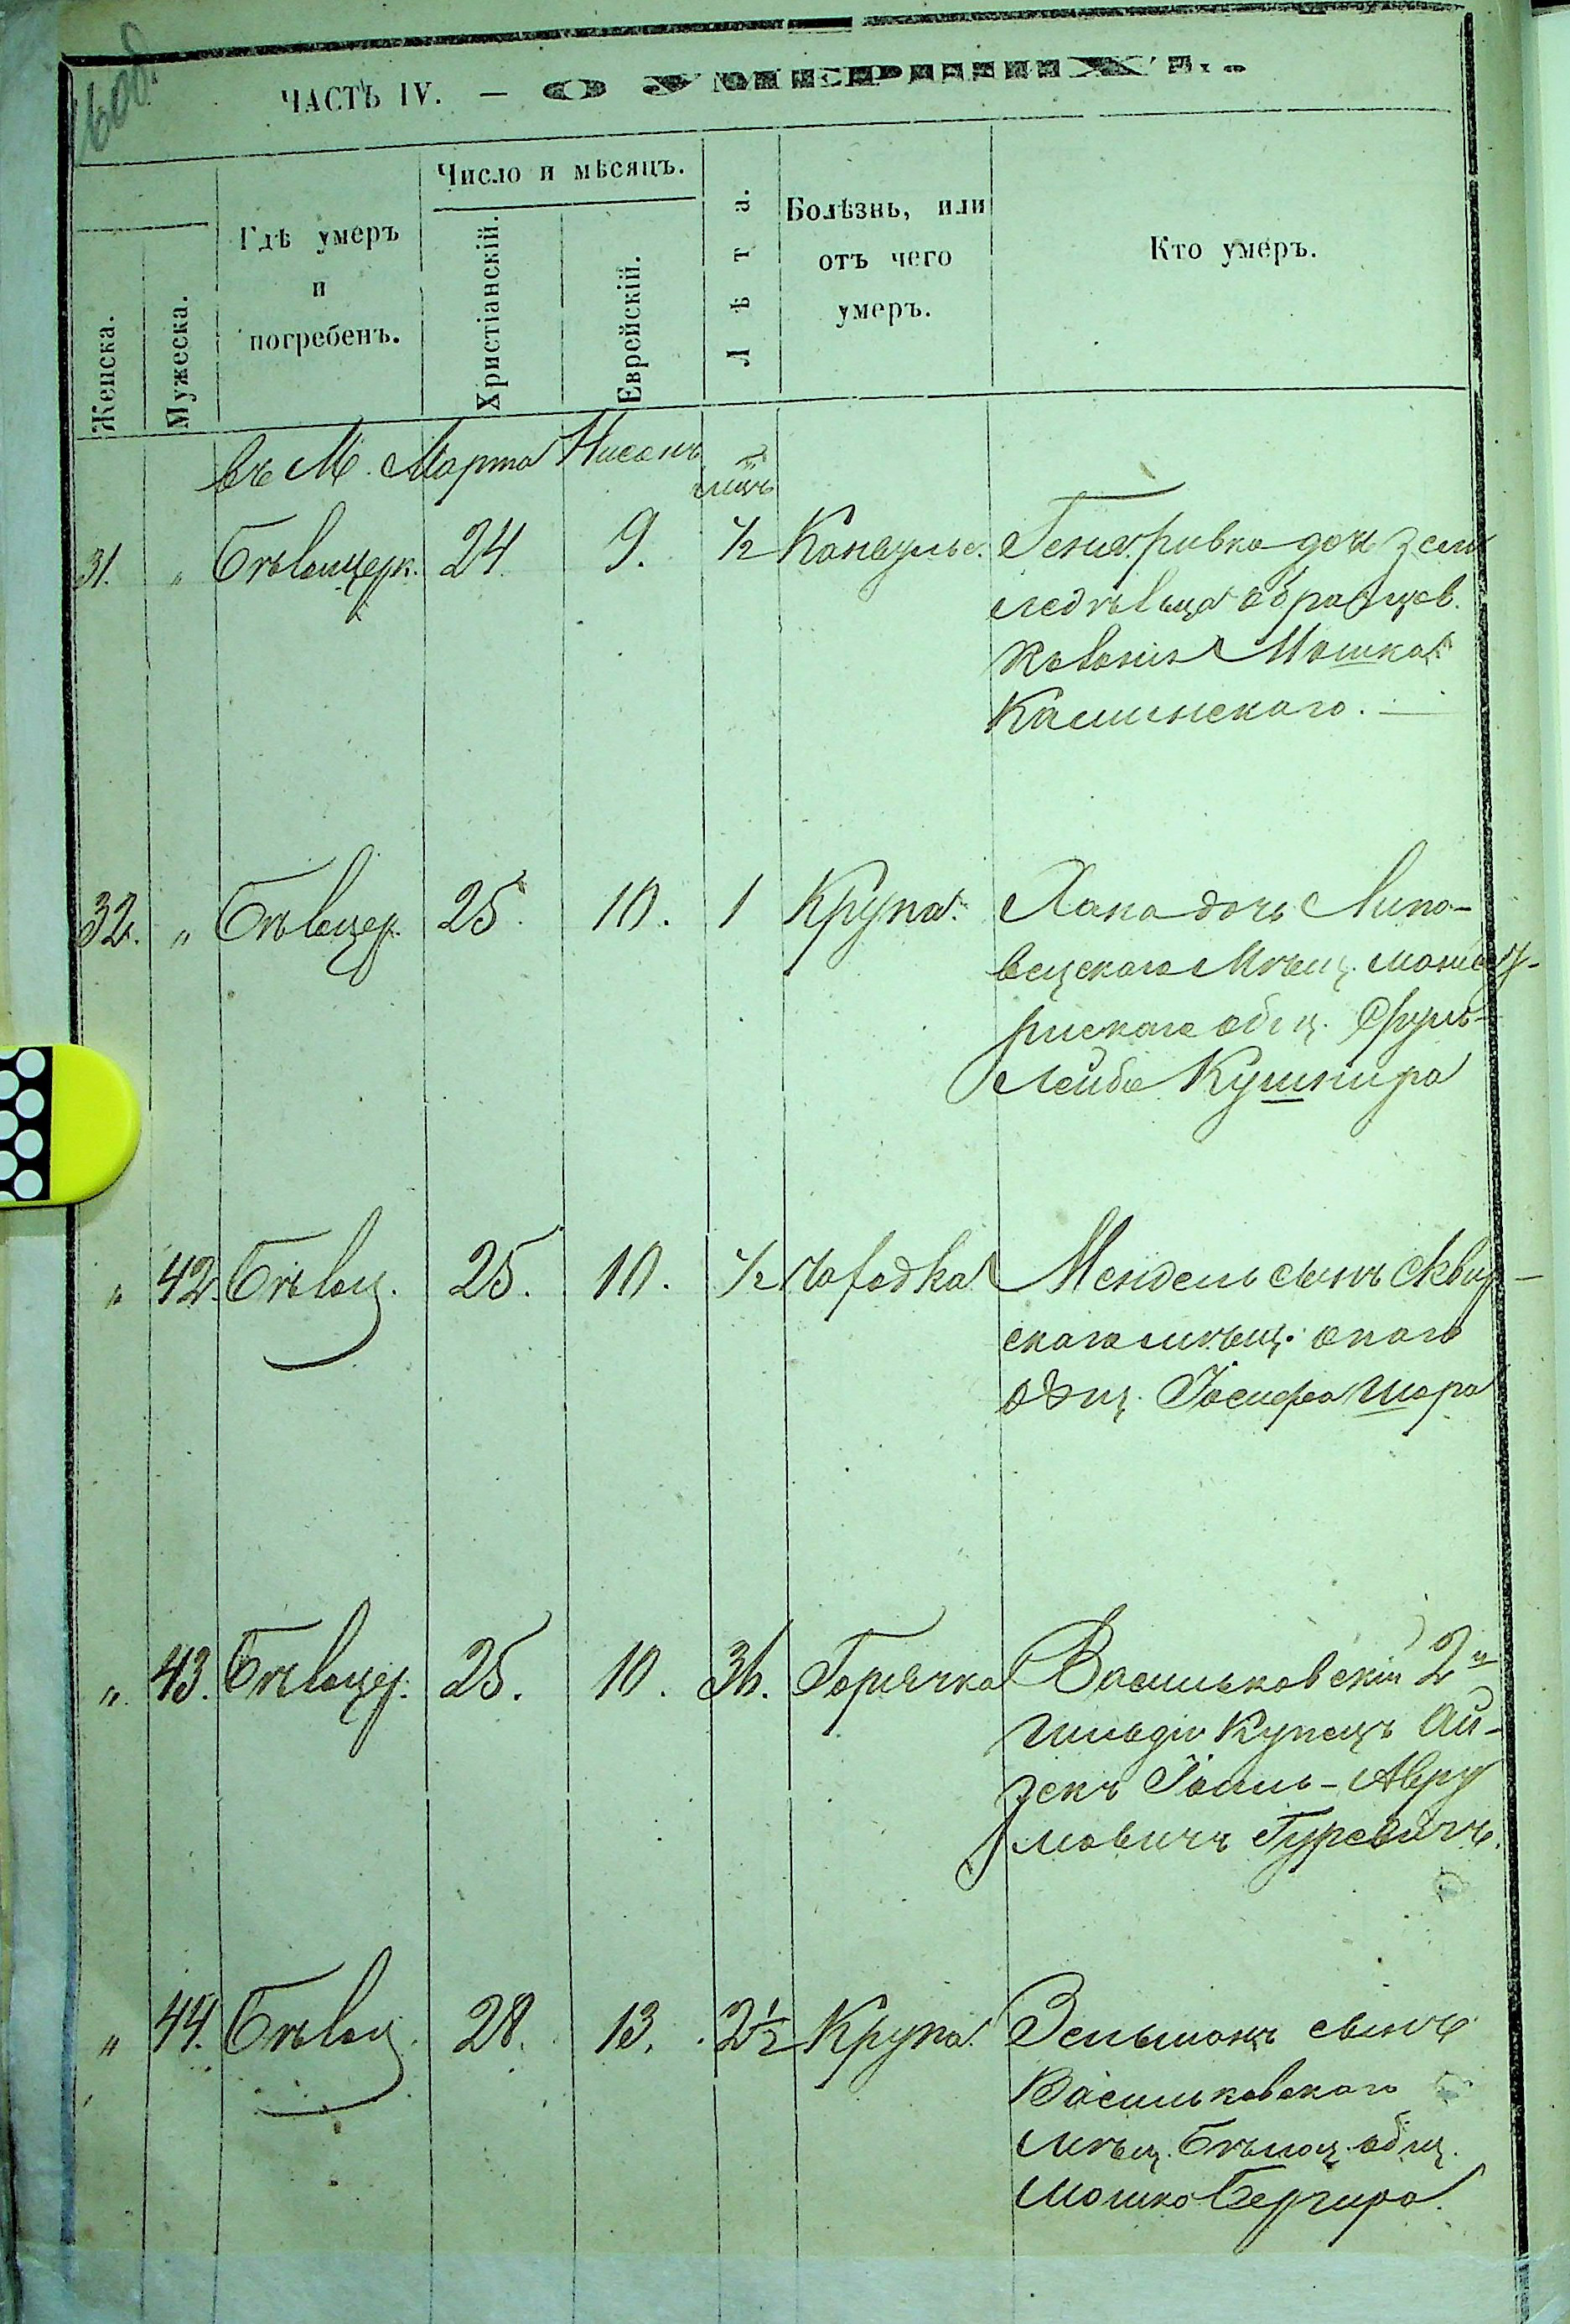 160об.
ЧАСТЬ IV. — О УМЕРШИХЪ.
Женска.
Мужеска.
Гдѣ умеръ
и
погребенъ.
Число и мѣсяцъ.
Христіанскій.
Еврейскій.
Лѣта.
Болѣзнь, или
отъ чего
умеръ.
Кто умеръ.
въ М. Марта Нисанъ
31. " Бѣлоцерк. 24 9. ½ Конвульс. Ривка дочь земле
ледѣльца образцов.
колоніи Мошка
Каминскаго. —
32. " Бѣлоцер. 25. 10. 1 Крупъ. Хана дочь Липо-
вецкаго Мѣщ.
общ. Сруль-
Лейба Кушнира
" 42. Бѣлоц. 25. 10. ½ Мендель сынъ Сквир-
скаго мѣщ. онаго
общ. Іосифа Шора
" 43. Бѣлоцер. 25. 10. 36. Горячка Васильковскій 2й
гильдіи Купецъ Ай-
зекъ Іоиль-Авру
мовичъ Гуревичъ.
" 44. Бѣлоц. 28. 13. 2½ Крупъ. Зельманъ сынъ
Васильковскаго
мѣщ. Бѣлоц. общ.
Мошко